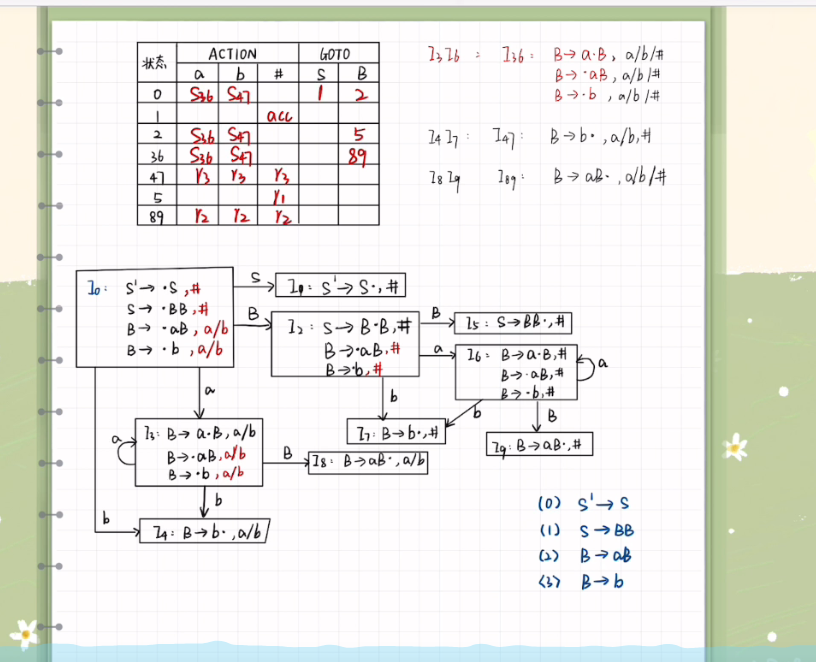 状态 ACTION GOTO
a b # S B
0 S36 S47 1 2
1 acc
2 S36 S47 5
36 S36 S47 89
47 r3 r3 r3
5 r1
89 r2 r2 r2
I3 I6 : I36 : B→a·B, a/b/#
B→·aB, a/b/#
B→·b, a/b/#
I4 I7 : I47 : B→b·, a/b,#
I8 I9 I89 : B→aB·, a/b/#
I0 : S'→·S,#
S→·BB,#
B→·aB, a/b
B→·b, a/b
S
I1 : S'→S·,#
B
I2 : S→B·B,#
B→·aB,#
B→·b,#
B
I5 : S→BB·,#
a
I6 : B→a·B,#
B→·aB,#
B→·b,#
a
a
b
b
B
I7 : B→b·,#
I9 : B→aB·,#
a
I3 : B→a·B, a/b
B→·aB, a/b
B→·b, a/b
B
I8 : B→aB·, a/b
b
b
I4 : B→b·, a/b
(0) S'→S
(1) S→BB
(2) B→aB
(3) B→b